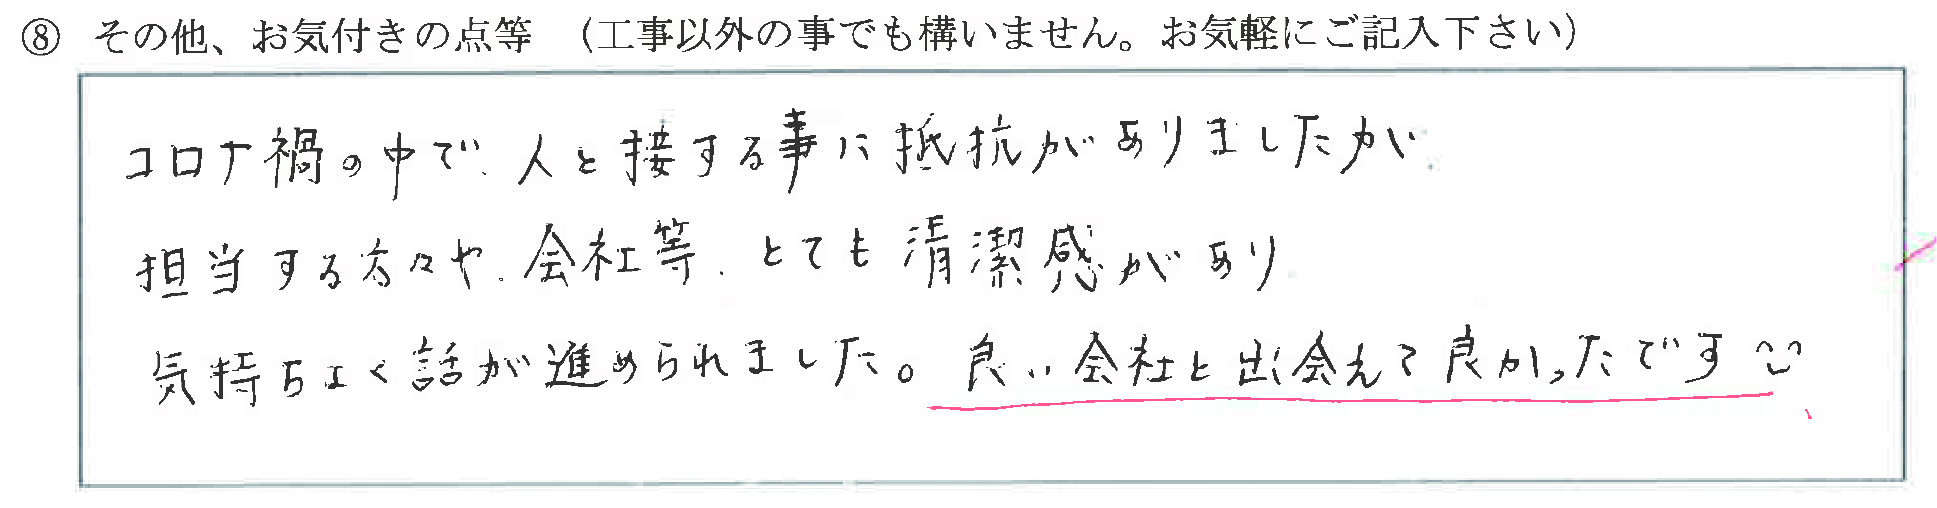 ⑧ その他、お気付きの点等 (工事以外の事でも構いません。お気軽にご記入下さい)
コロナ禍の中で、人と接する事に抵抗がありましたが、
担当する方々や、会社等、とても清潔感があり
気持ちよく話が進められました。良い会社と出会えて良かったです